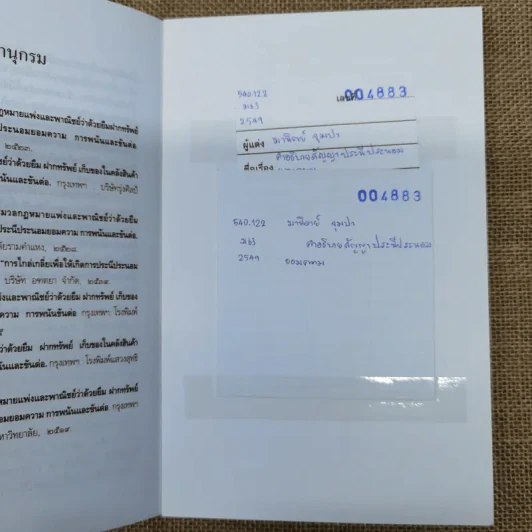 านุกรม
ฎหมายแพ่งและพาณิชย์ว่าด้วยยืมฝากทรัพย์
ประนอมยอมความ การพนันและขันต่อ.
๒๕๒๓.
ชย์ว่าด้วยยืม ฝากทรัพย์ เก็บของในคลัง
นันและขันต่อ. กรุงเทพฯ : บริษัทรุ่งศิลป์
มวลกฎหมายแพ่งและพาณิชย์ว่าด้วยยืม
ประนีประนอมยอมความ การพนันและขันต่อ.
ลัยรามคำแหง, ๒๕๒๘.
"การไกล่เกลี่ยเพื่อให้เกิดการประนีประนอม
บริษัท อฑตยา จำกัด, ๒๕๓๙.
พ่งและพาณิชย์ว่าด้วยยืม ฝากทรัพย์ เก็บของ
มความ การพนันขันต่อ กรุงเทพฯ: โรงพิมพ์
๕
ว่าด้วยยืม ฝากทรัพย์ เก็บของในคลังสินค้า
นและขันต่อ. กรุงเทพฯ : โรงพิมพ์แสวงสุทธิ
หมายแพ่งและพาณิชย์ว่าด้วยยืม ฝากทรัพย์
อมยอมความ การพนันและขันต่อ. กรุงเทพฯ
หาวิทยาลัย, ๒๕๑๙.
540.122
004883
ม63
2549
ผู้แต่ง มานิตย์ จุมปา
ชื่อเรื่อง คำอธิบายสัญญาประนีประนอม
004883
540.122 มานิตย์ จุมปา
ม63 คำอธิบายสัญญาประนีประนอม
2549 ยอมความ